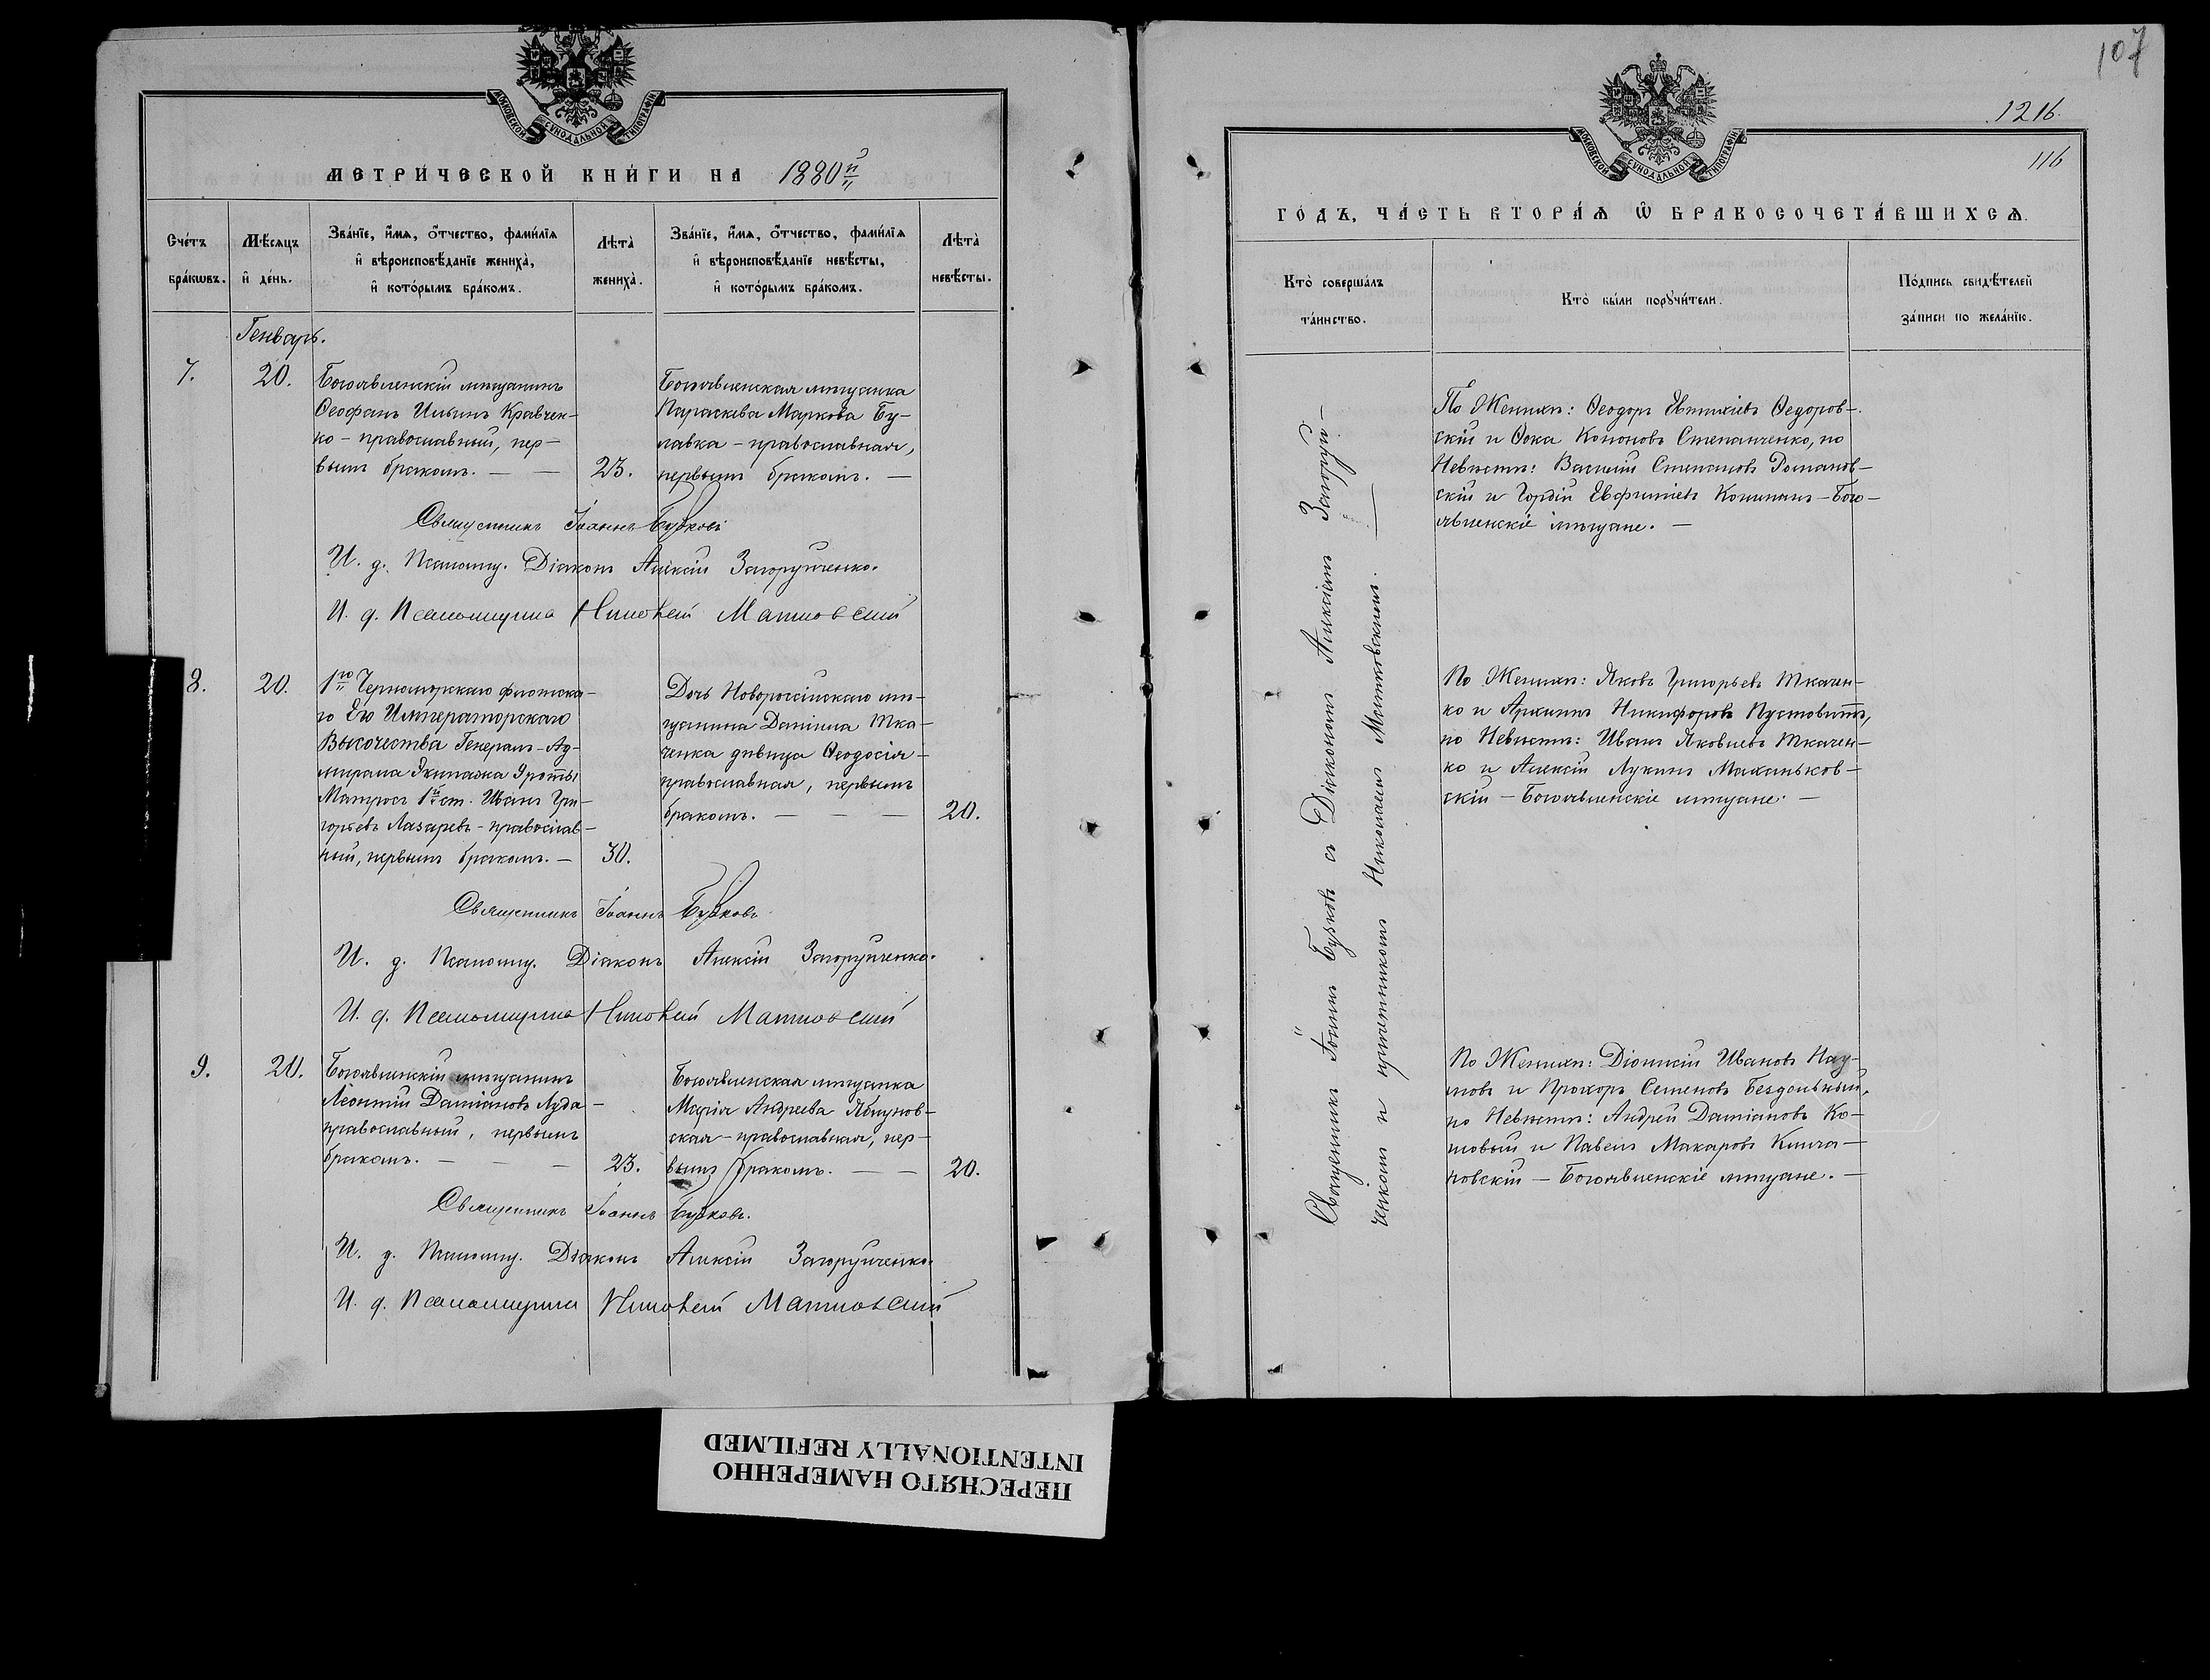 МОСКОВСКОЙ СѴНОДАЛЬНОЙ ТИПОГРАФІИ
МЕТРИ́ЧЕСКОЙ КНИ́ГИ НА 1880й
Сче́тъ бра́кѡвъ.
Мѣ́сяцъ и҆ де́нь.
Зва́нїе, и҆́мѧ, ѻ҆́тчество, фами́лїѧ
и҆ вѣроисповѣ́данїе женихà,
и҆ кото́рымъ бра́комъ.
Лѣта̀ жениха̀.
Зва́нїе, и҆́мѧ, ѻ҆́тчество, фами́лїѧ
и҆ вѣроисповѣ́данїе невѣ́сты,
и҆ кото́рымъ бра́комъ.
Лѣта̀ невѣ́сты.
Генварь.
7.
20.
Богоявленскій мѣщанинъ
Ѳеофанъ Ильинъ Кравчен-
ко - православный, пер-
вымъ бракомъ. — —
23.
Богоявленская мѣщанка
Параскева Маркова Бу-
лавка - православная,
первымъ бракомъ. —
Священникъ Іоаннъ Бузковъ
И. д. Псаломщ. Діаконъ Алексій Загоруйченко.
И. д. Псаломщика Николай Матковский
8.
20.
1го Черноморскаго флотска-
го Его Императорскаго
Высочества Генералъ-Ад-
мирала Экипажа 9 роты
Матросъ 1й ст. Иванъ Гри-
горьевъ Лазаревъ - православ-
ный, первымъ бракомъ. —
30.
Дочь Новороссійскаго мѣ-
щанина Даніила Тка-
ченка дѣвица Ѳеодосія -
православная, первымъ
бракомъ. — — —
20.
Священникъ Іоаннъ Бузковъ
И. д. Псаломщ. Діаконъ Алексій Загоруйченко.
И. д. Псаломщика Николай Матковский
9.
20.
Богоявленскій мѣщанинъ
Леонтій Даміановъ Луда -
православный, первымъ
бракомъ. — — —
23.
Богоявленская мѣщанка
Марія Андреева Яблунов-
ская - православная, пер-
вымъ бракомъ. — —
20.
Священникъ Іоаннъ Бузковъ.
И. д. Псаломщ. Діаконъ Алексій Загоруйченко.
И. д. Псаломщика Николай Матковский
107
1216.
116
МОСКОВСКОЙ СѴНОДАЛЬНОЙ ТИПОГРАФІИ
ГО́ДЪ, ЧА́СТЬ ВТОРА́Ѧ Ѽ БРАКОСОЧЕТА́ВШИХСѦ.
Кто̀ соверша́лъ
та́инство.
Кто̀ бы́ли порꙋчи́тели.
По́дпись свидѣ́телей
за́писи по жела́нїю.
Священникъ Іоаннъ Бузковъ съ Діакономъ Алексіемъ Загоруй-
ченкомъ и причетникомъ Николаемъ Матковскимъ. —
По Женихѣ: Ѳеодоръ Евтихіевъ Ѳедоров-
скій и Ѳока Кононовъ Степанченко, по
Невѣстѣ: Василій Степановъ Доманов-
скій и Гордій Евфиміевъ Колиманъ - Бого-
явленскіе мѣщане. —
По Женихѣ: Яковъ Григорьевъ Ткачен-
ко и Архипъ Никифоровъ Пустовитъ,
по Невѣстѣ: Иванъ Яковлевъ Ткачен-
ко и Алексій Лукинъ Маханьков-
скій - Богоявленскіе мѣщане. —
По Женихѣ: Діонисій Ивановъ Нау-
мовъ и Прохоръ Семеновъ Бездольный,
по Невѣстѣ: Андрей Даміановъ Ко-
товый и Павелъ Макаровъ Клича-
новскій - Богоявленскіе мѣщане. —
ПЕРЕСНЯТО НАМЕРЕННО
INTENTIONALLY REFILMED